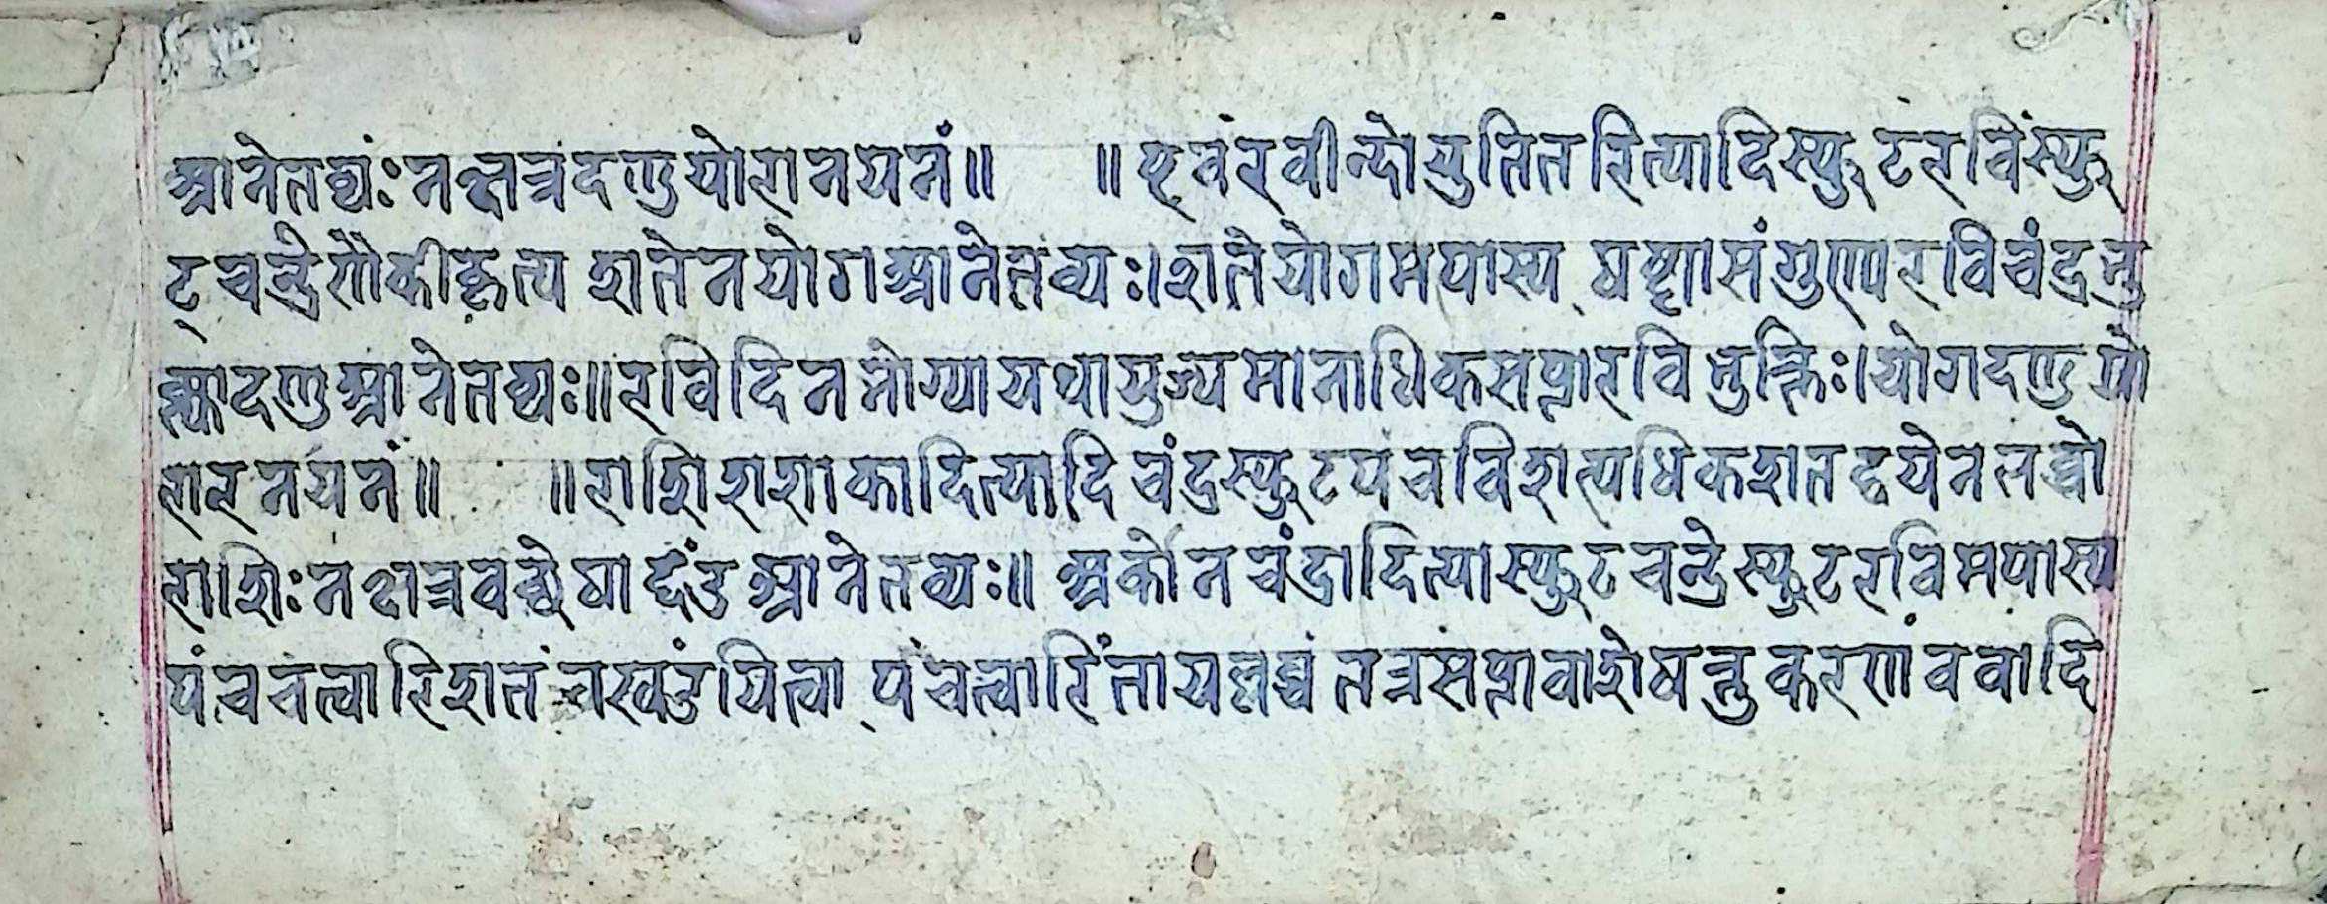 आनेतव्यंः नक्षत्रदण्डयोरानयनं॥ ॥ एवं रवीन्दोयुतितरित्यादि स्फुटरविं स्फु
टचन्द्रेणैकीकृत्य शतेन योग आनेतव्यः। शते योगमपास्य षष्ट्या संगुण्य रविचंद्रभु
क्त्या दण्ड आनेतव्यः॥ रविदिनभोग्या यथा युज्यमानाधिकसप्ता रविभुक्तिः। योगदण्डयो
रारनयनं॥ ॥ राशिशशाकादित्यादि चंद्रस्फुट पचविशत्यधिकशतद्वयेन लब्धो
राशिः नक्षत्रवच्छेषाद्दंड आनेतव्यः॥ अर्कोनचंद्रादित्या स्फुटचन्द्रे स्फुटरविमपास्य
पंचचत्वारिशतं च खंडयित्वा पंचत्वारिंता यल्लब्धं तत्र सप्तावाशेषन्तु करणं ववादि